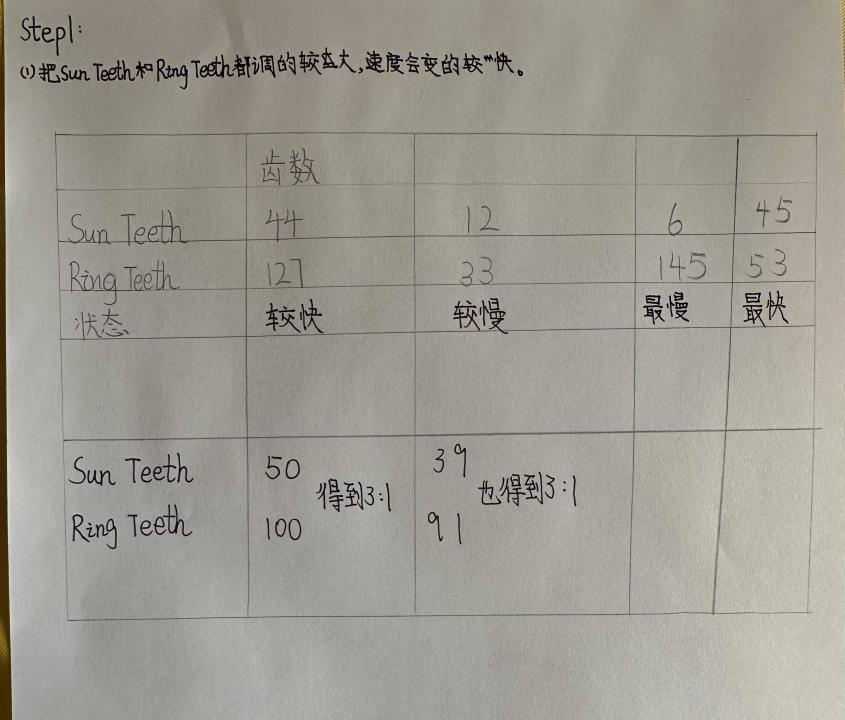 Step1:
(1)把Sun Teeth和Ring Teeth都调的较大,速度会变的较快。
齿数
Sun Teeth 44 12 6 45
Ring Teeth 127 33 145 53
状态 较快 较慢 最慢 最快
Sun Teeth 50 得到3:1 39 也得到3:1
Ring Teeth 100 91